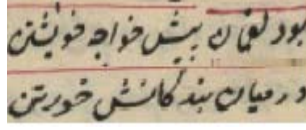 بود لقمان پیش خواجه خویشتن
در میان بندگانش خورتن